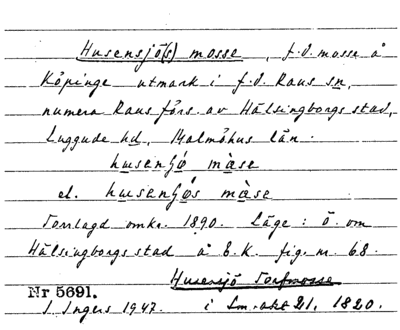 Husensjö(s) mosse, f.d. mosse å
Köpinge utmark i f.d. Raus sn,
numera Raus förs. av Hälsingborgs stad,
Luggude hd, Malmöhus län.
husensjö måse
el. husensjös måse
Torrlagd omkr. 1890. Läge: ö. om
Hälsingborgs stad å E.K. fig. nr 68.
Husensjö Torfmosse
Nr 5691.
I. Ingers 1947. i Lm.akt 21, 1820.